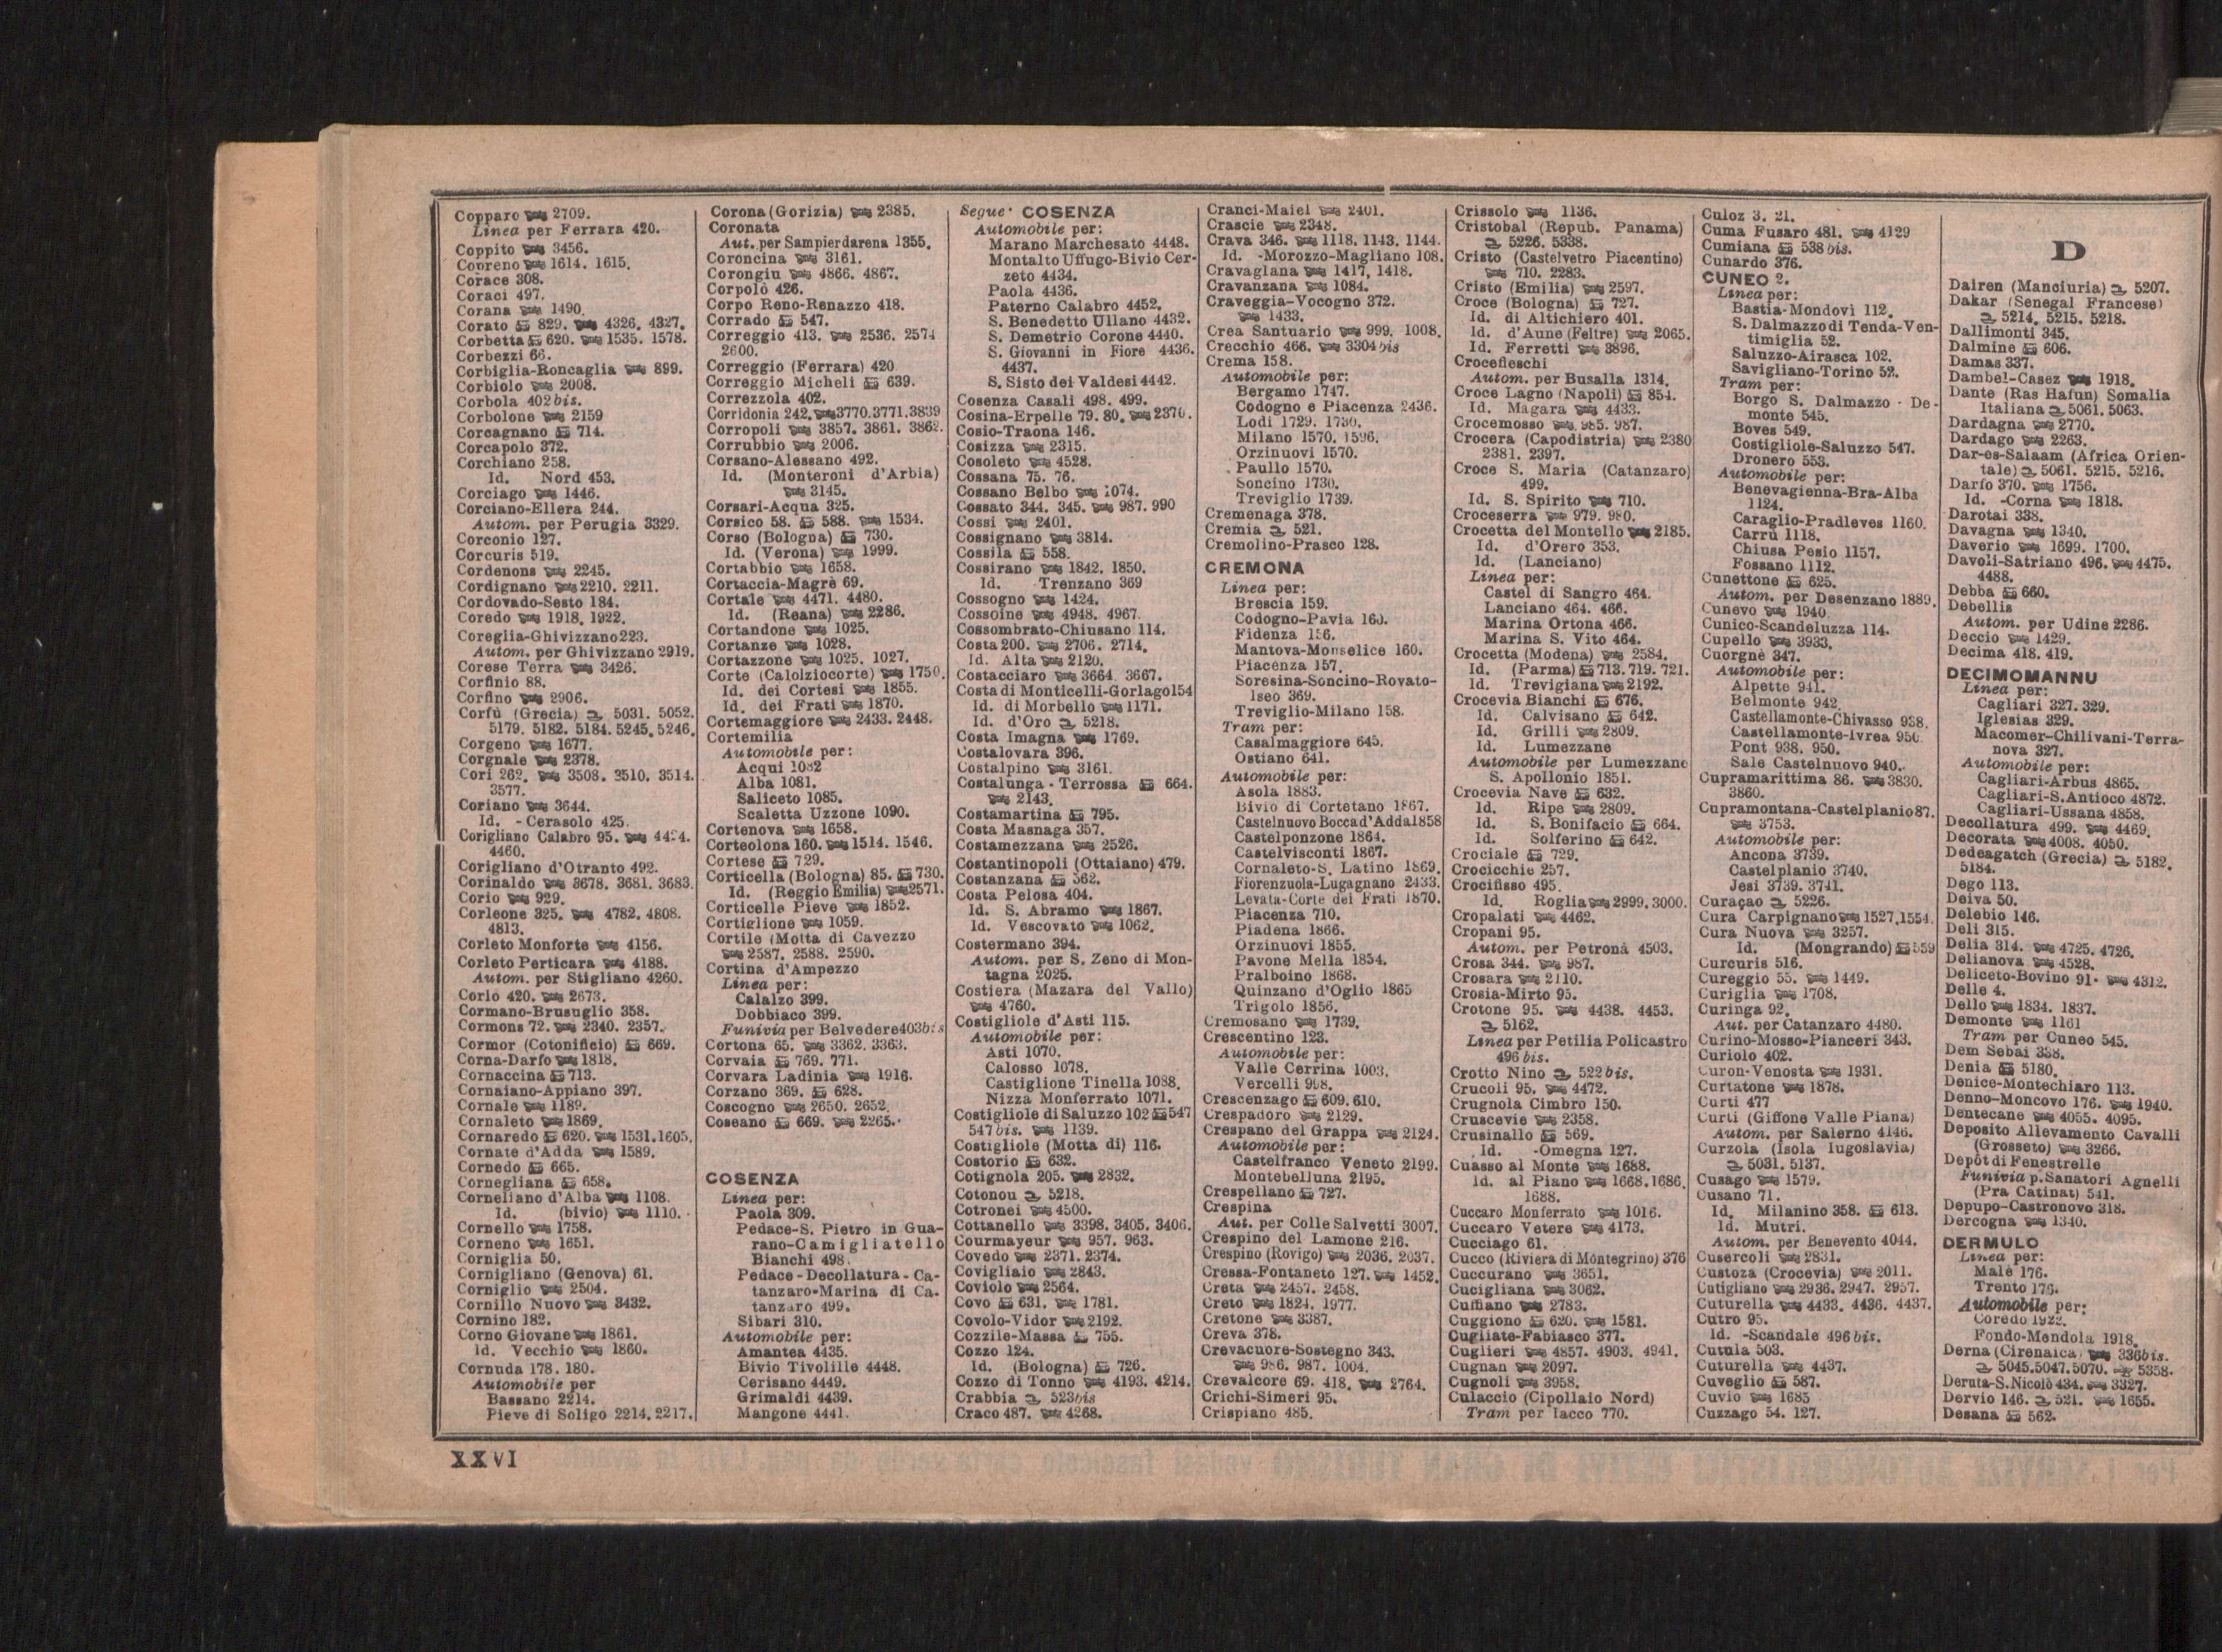 Copparo 2709.
Linea per Ferrara 420.
Coppito 3456.
Copreno 1614. 1615.
Corace 308.
Coraci 497.
Corana 1490.
Corato 829. 4326. 4327.
Corbetta 620. 1535. 1578.
Corbezzi 66.
Corbiglia-Roncaglia 899.
Corbiolo 2008.
Corbola 402 bis.
Corbolone 2159
Corcagnano 714.
Corcapolo 372.
Corchiano 258.
Id. Nord 453.
Corciago 1446.
Corciano-Ellera 244.
Autom. per Perugia 3329.
Corconio 127.
Corcuris 519.
Cordenons 2245.
Cordignano 2210. 2211.
Cordovado-Sesto 184.
Coredo 1918. 1922.
Coreglia-Ghivizzano 223.
Autom. per Ghivizzano 2919.
Corese Terra 3426.
Corfinio 88.
Corfino 2906.
Corfù (Grecia) 5031. 5052.
5179. 5182. 5184. 5245. 5246.
Corgeno 1677.
Corgnale 2378.
Cori 262. 3508. 3510. 3514.
3577.
Coriano 3644.
Id. - Cerasolo 425.
Corigliano Calabro 95.
4460.
Corigliano d'Otranto 492.
Corinaldo 3678. 3681. 3683.
Corio 929.
Corleone 325. 4782. 4808.
4813.
Corleto Monforte 4156.
Corleto Perticara 4188.
Autom. per Stigliano 4260.
Corlo 420. 2673.
Cormano-Brusuglio 358.
Cormons 72. 2340. 2357.
Cormor (Cotonificio) 669.
Corna-Darfo 1818.
Cornaccina 713.
Cornaiano-Appiano 397.
Cornale 1189.
Cornaleto 1869.
Cornaredo 620. 1531. 1605.
Cornate d'Adda 1589.
Cornedo 665.
Cornegliana 658.
Corneliano d'Alba 1108.
Id. (bivio) 1110.
Cornello 1758.
Corneno 1651.
Corniglia 50.
Cornigliano (Genova) 61.
Corniglio 2504.
Cornillo Nuovo 3432.
Cornino 182.
Corno Giovane 1861.
Id. Vecchio 1860.
Cornuda 178. 180.
Automobile per
Bassano 2214.
Pieve di Soligo 2214. 2217.
Corona (Gorizia) 2385.
Coronata
Aut. per Sampierdarena 1355.
Coroncina 3161.
Corongiu 4866. 4867.
Corpolò 426.
Corpo Reno-Renazzo 418.
Corrado 547.
Correggio 413. 2536. 2574
2600.
Correggio (Ferrara) 420
Correggio Micheli 639.
Correzzola 402.
Corridonia 242. 3770. 3771. 3839
Corropoli 3857. 3861. 3862.
Corrubbio 2006.
Corsano-Alessano 492.
Id. (Monteroni d'Arbia)
3145.
Corsari-Acqua 325.
Corsico 58. 588. 1534.
Corso (Bologna) 730.
Id. (Verona) 1999.
Cortabbio 1658.
Cortaccia-Magrè 69.
Cortale 4471. 4480.
Id. (Reana) 2286.
Cortandone 1025.
Cortanze 1028.
Cortazzone 1025. 1027.
Corte (Calolziocorte) 1750.
Id. dei Cortesi 1855.
Id. dei Frati 1870.
Cortemaggiore 2433. 2448.
Cortemilia
Automobile per:
Acqui 1082
Alba 1081.
Saliceto 1085.
Scaletta Uzzone 1090.
Cortenova 1658.
Corteolona 160. 1514. 1546.
Cortese 729.
Corticella (Bologna) 85. 730.
Id. (Reggio Emilia) 2571.
Corticelle Pieve 1852.
Cortiglione 1059.
Cortile (Motta di Cavezzo
2587. 2588. 2590.
Cortina d'Ampezzo
Linea per:
Calalzo 399.
Dobbiaco 399.
Funivia per Belvedere 403 bis
Cortona 65. 3362. 3363.
Corvaia 769. 771.
Corvara Ladinia 1916.
Corzano 369. 628.
Coscogno 2650. 2652.
Coseano 669. 2265.
COSENZA
Linea per:
Paola 309.
Pedace-S. Pietro in Gua-
rano-Camigliatello
Bianchi 498.
Pedace-Decollatura-Ca-
tanzaro-Marina di Ca-
tanzaro 499.
Sibari 310.
Automobile per:
Amantea 4435.
Bivio Tivolille 4448.
Cerisano 4449.
Grimaldi 4439.
Mangone 4441.
Segue COSENZA
Automobile per:
Marano Marchesato 4448.
Montalto Uffugo-Bivio Cer-
zeto 4434.
Paola 4436.
Paterno Calabro 4452.
S. Benedetto Ullano 4432.
S. Demetrio Corone 4440.
S. Giovanni in Fiore 4436.
4437.
S. Sisto dei Valdesi 4442.
Cosenza Casali 498. 499.
Cosina-Erpelle 79. 80. 2370.
Cosio-Traona 146.
Cosizza 2315.
Cosoleto 4528.
Cossana 75. 76.
Cossano Belbo 1074.
Cossato 344. 345. 987. 990
Cossi 2401.
Cossignano 3814.
Cossila 558.
Cossirano 1842. 1850.
Id. Trenzano 369
Cossogno 1424.
Cossoine 4948. 4967.
Cossombrato-Chiusano 114.
Costa 200. 2706. 2714.
Id. Alta 2120.
Costacciaro 3664. 3667.
Costa di Monticelli-Gorlago 154
Id. di Morbello 1171.
Id. d'Oro 5218.
Costa Imagna 1769.
Costalovara 396.
Costalpino 3161.
Costalunga - Terrossa 664.
2143.
Costamartina 795.
Costa Masnaga 357.
Costamezzana 2526.
Costantinopoli (Ottaiano) 479.
Costanzana 562.
Costa Pelosa 404.
Id. S. Abramo 1867.
Id. Vescovato 1062.
Costermano 394.
Autom. per S. Zeno di Mon-
tagna 2025.
Costiera (Mazara del Vallo)
4760.
Costigliole d'Asti 115.
Automobile per:
Asti 1070.
Calosso 1078.
Castiglione Tinella 1088.
Nizza Monferrato 1071.
Costigliole di Saluzzo 102 547
547 bis. 1139.
Costigliole (Motta di) 116.
Costorio 632.
Cotignola 205. 2832.
Cotonou 5218.
Cotronei 4500.
Cottanello 3398. 3405. 3406.
Courmayeur 957. 963.
Covedo 2371. 2374.
Covigliaio 2843.
Coviolo 2564.
Covo 631. 1781.
Covolo-Vidor 2192.
Cozzile-Massa 755.
Cozzo 124.
Id. (Bologna) 726.
Cozzo di Tonno 4193. 4214.
Crabbia 523 bis
Craco 487. 4268.
Cranci-Maiel 2401.
Crascie 2348.
Crava 346. 1118. 1143. 1144.
Id. -Morozzo-Magliano 108.
Cravagliana 1417. 1418.
Cravanzana 1084.
Craveggia-Vocogno 372.
1433.
Crea Santuario 999. 1008.
Crecchio 466. 3304 bis
Crema 158.
Automobile per:
Bergamo 1747.
Codogno e Piacenza 2436.
Lodi 1729. 1730.
Milano 1570. 1596.
Orzinuovi 1570.
Paullo 1570.
Soncino 1730.
Treviglio 1739.
Cremenaga 378.
Cremia 521.
Cremolino-Prasco 128.
CREMONA
Linea per:
Brescia 159.
Codogno-Pavia 160.
Fidenza 156.
Mantova-Monselice 160.
Piacenza 157.
Soresina-Soncino-Rovato-
Iseo 369.
Treviglio-Milano 158.
Tram per:
Casalmaggiore 645.
Ostiano 641.
Automobile per:
Asola 1883.
Bivio di Cortetano 1867.
Castelnuovo Bocca d'Adda 1858
Castelponzone 1864.
Castelvisconti 1867.
Cornaleto-S. Latino 1869.
Fiorenzuola-Lugagnano 2433.
Levata-Corte dei Frati 1870.
Piacenza 710.
Piadena 1866.
Orzinuovi 1855.
Pavone Mella 1854.
Pralboino 1868.
Quinzano d'Oglio 1865
Trigolo 1856.
Cremosano 1739.
Crescentino 123.
Automobile per:
Valle Cerrina 1003.
Vercelli 998.
Crescenzago 609. 610.
Crespadoro 2129.
Crespano del Grappa 2124.
Automobile per:
Castelfranco Veneto 2199.
Montebelluna 2195.
Crespellano 727.
Crespina
Aut. per Colle Salvetti 3007.
Crespino del Lamone 216.
Crespino (Rovigo) 2036. 2037.
Cressa-Fontaneto 127. 1452.
Creta 2457. 2458.
Creto 1824. 1977.
Cretone 3387.
Creva 378.
Crevacuore-Sostegno 343.
986. 987. 1004.
Crevalcore 69. 418. 2764.
Crichi-Simeri 95.
Crispiano 485.
Crissolo 1136.
Cristobal (Repub. Panama)
5226. 5338.
Cristo (Castelvetro Piacentino)
710. 2283.
Cristo (Emilia) 2597.
Croce (Bologna) 727.
Id. di Altichiero 401.
Id. d'Aune (Feltre) 2065.
Id. Ferretti 3896.
Crocefieschi
Autom. per Busalla 1314.
Croce Lagno (Napoli) 854.
Id. Magara 4433.
Crocemosso 985. 987.
Crocera (Capodistria) 2380
2381. 2397.
Croce S. Maria (Catanzaro)
499.
Id. S. Spirito 710.
Croceserra 979. 980.
Crocetta del Montello 2185.
Id. d'Orero 353.
Id. (Lanciano)
Linea per:
Castel di Sangro 464.
Lanciano 464. 466.
Marina Ortona 466.
Marina S. Vito 464.
Crocetta (Modena) 2584.
Id. (Parma) 713. 719. 721.
Id. Trevigiana 2192.
Crocevia Bianchi 676.
Id. Calvisano 642.
Id. Grilli 2809.
Id. Lumezzane
Automobile per Lumezzane
S. Apollonio 1851.
Crocevia Nave 632.
Id. Ripe 2809.
Id. S. Bonifacio 664.
Id. Solferino 642.
Crociale 729.
Crocicchie 257.
Crocifisso 495.
Id. Roglia 2999. 3000.
Cropalati 4462.
Cropani 95.
Autom. per Petronà 4503.
Crosa 344. 987.
Crosara 2110.
Crosia-Mirto 95.
Crotone 95. 4438. 4453.
5162.
Linea per Petilia Policastro
496 bis.
Crotto Nino 522 bis.
Crucoli 95. 4472.
Crugnola Cimbro 150.
Cruscevie 2358.
Crusinallo 569.
Id. -Omegna 127.
Cuasso al Monte 1688.
Id. al Piano 1668. 1686.
1688.
Cuccaro Monferrato 1016.
Cuccaro Vetere 4173.
Cucciago 61.
Cucco (Riviera di Montegrino) 376
Cuccurano 3651.
Cucigliana 3062.
Cuffiano 2783.
Cuggiono 620. 1581.
Cugliate-Fabiasco 377.
Cuglieri 4857. 4903. 4941.
Cugnan 2097.
Cugnoli 3958.
Culaccio (Cipollaio Nord)
Tram per Iacco 770.
Culoz 3. 21.
Cuma Fusaro 481. 4129
Cumiana 538 bis.
Cunardo 376.
CUNEO 2.
Linea per:
Bastia-Mondovì 112.
S. Dalmazzo di Tenda-Ven-
timiglia 52.
Saluzzo-Airasca 102.
Savigliano-Torino 52.
Tram per:
Borgo S. Dalmazzo - De-
monte 545.
Boves 549.
Costigliole-Saluzzo 547.
Dronero 553.
Automobile per:
Benevagienna-Bra-Alba
1124.
Caraglio-Pradleves 1160.
Carrù 1118.
Chiusa Pesio 1157.
Fossano 1112.
Cunettone 625.
Autom. per Desenzano 1889.
Cunevo 1940.
Cunico-Scandeluzza 114.
Cupello 3933.
Cuorgnè 347.
Automobile per:
Alpette 941.
Belmonte 942.
Castellamonte-Chivasso 938.
Castellamonte-Ivrea 950.
Pont 938. 950.
Sale Castelnuovo 940.
Cupramarittima 86. 3830.
3860.
Cupramontana-Castelplanio 87.
3753.
Automobile per:
Ancona 3739.
Castelplanio 3740.
Jesi 3739. 3741.
Curaçao 5226.
Cura Carpignano 1527. 1554.
Cura Nuova 3257.
Id. (Mongrando) 559
Curcuris 516.
Cureggio 55. 1449.
Curiglia 1708.
Curinga 92.
Aut. per Catanzaro 4480.
Curino-Mosso-Pianceri 343.
Curiolo 402.
Curon-Venosta 1931.
Curtatone 1878.
Curti 477
Curti (Giffone Valle Piana)
Autom. per Salerno 4146.
Curzola (Isola Iugoslavia)
5031. 5137.
Cusago 1579.
Cusano 71.
Id. Milanino 358. 613.
Id. Mutri.
Autom. per Benevento 4044.
Cusercoli 2831.
Custoza (Crocevia) 2011.
Cutigliano 2936. 2947. 2957.
Cuturella 4433. 4436. 4437.
Cutro 95.
Id. -Scandale 496 bis.
Cutula 503.
Cuturella 4437.
Cuveglio 587.
Cuvio 1685
Cuzzago 54. 127.
D
Dairen (Manciuria) 5207.
Dakar (Senegal Francese)
5214. 5215. 5218.
Dallimonti 345.
Dalmine 606.
Damas 337.
Dambel-Casez 1918.
Dante (Ras Hafun) Somalia
Italiana 5061. 5063.
Dardagna 2770.
Dardago 2263.
Dar-es-Salaam (Africa Orien-
tale) 5061. 5215. 5216.
Darfo 370. 1756.
Id. -Corna 1818.
Darotai 338.
Davagna 1340.
Daverio 1699. 1700.
Davoli-Satriano 496. 4475.
4488.
Debba 660.
Debellis
Autom. per Udine 2286.
Deccio 1429.
Decima 418. 419.
DECIMOMANNU
Linea per:
Cagliari 327. 329.
Iglesias 329.
Macomer-Chilivani-Terra-
nova 327.
Automobile per:
Cagliari-Arbus 4865.
Cagliari-S. Antioco 4872.
Cagliari-Ussana 4858.
Decollatura 499. 4469.
Decorata 4008. 4050.
Dedeagatch (Grecia) 5182.
5184.
Dego 113.
Deiva 50.
Delebio 146.
Deli 315.
Delia 314. 4725. 4726.
Delianova 4528.
Deliceto-Bovino 91. 4312.
Delle 4.
Dello 1834. 1837.
Demonte 1161
Tram per Cuneo 545.
Dem Sebai 338.
Denia 5180.
Denice-Montechiaro 113.
Denno-Moncovo 176. 1940.
Dentecane 4055. 4095.
Deposito Allevamento Cavalli
(Grosseto) 3266.
Depôt di Fenestrelle
Funivia p. Sanatori Agnelli
(Pra Catinat) 541.
Depupo-Castronovo 318.
Dercogna 1340.
DERMULO
Linea per:
Malè 176.
Trento 176.
Automobile per:
Coredo 1922.
Fondo-Mendola 1918.
Derna (Cirenaica) 336 bis.
5045. 5047. 5070. 5358.
Deruta-S. Nicolò 434. 3327.
Dervio 146. 521. 1655.
Desana 562.
XXVI